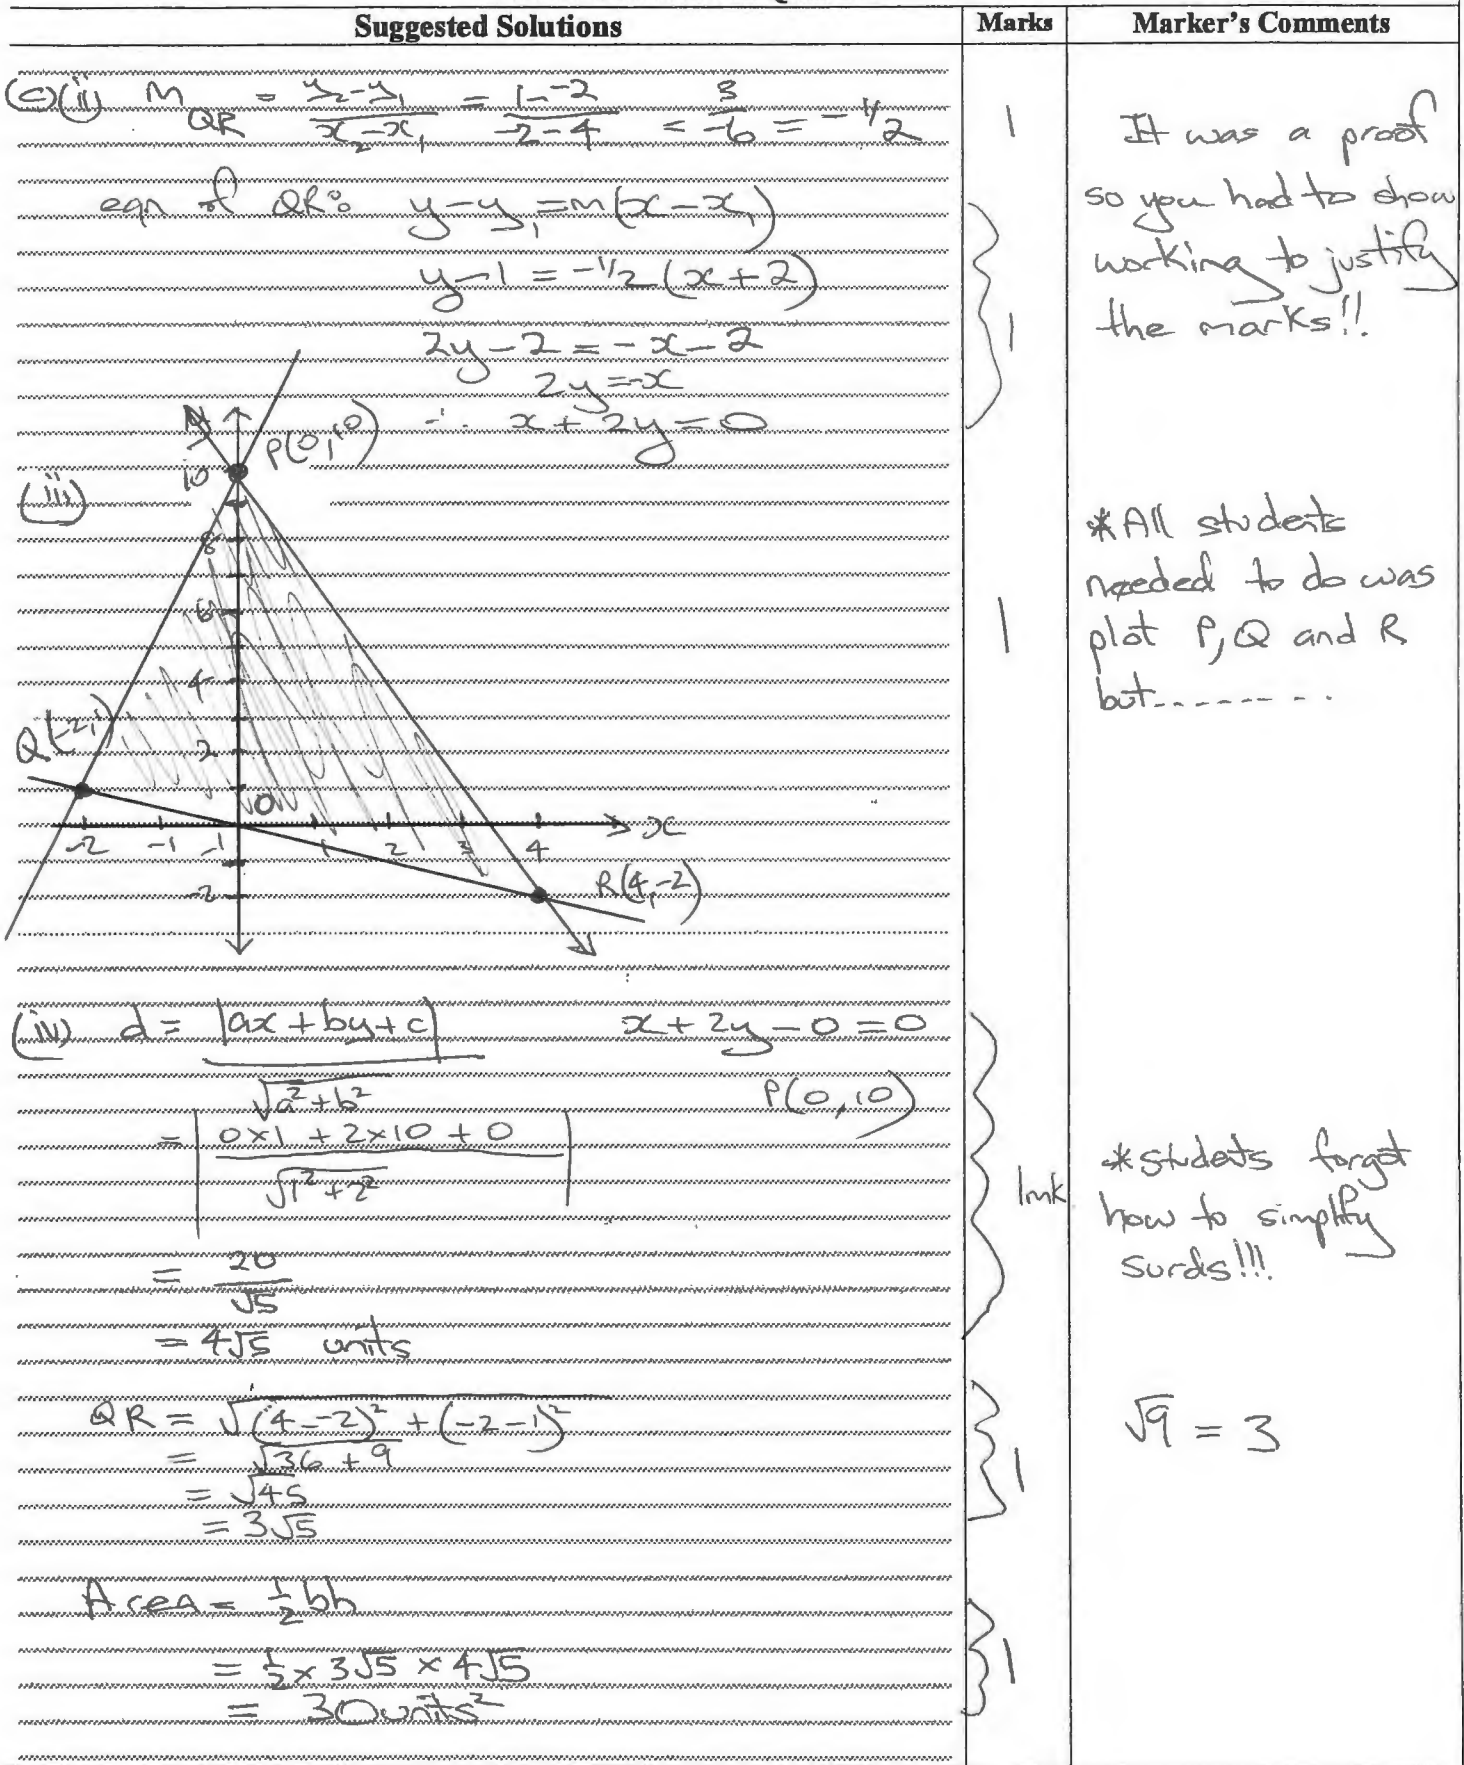 Suggested Solutions
Marks
Marker's Comments
(c)(ii) M_QR = (y₂-y₁)/(x₂-x₁) = (1--2)/(-2-4) = 3/-6 = -1/2
1
eqn of QR: y-y₁=m(x-x₁)
y-1 = -1/2 (x+2)
2y-2 = -x-2
2y=-x
∴ x+2y=0
1
It was a proof
so you had to show
working to justify
the marks!!
(iii)
y
P(0,10)
10
8
6
4
2
Q(-2,1)
0
-2 -1 -1 1 2 3 4 x
-2
R(4,-2)
1
*All students
needed to do was
plot P, Q and R
but--------.
(iv) d = |ax+by+c| / √(a²+b²)
x+2y-0=0
P(0,10)
= | (0×1 + 2×10 + 0) / √(1²+2²) |
= 20/√5
= 4√5 units
1mk
*students forgot
how to simplify
surds!!!
QR = √((4--2)² + (-2-1)²)
= √(36+9)
= √45
= 3√5
1
√9 = 3
Area = ½bh
= ½ × 3√5 × 4√5
= 30units²
1